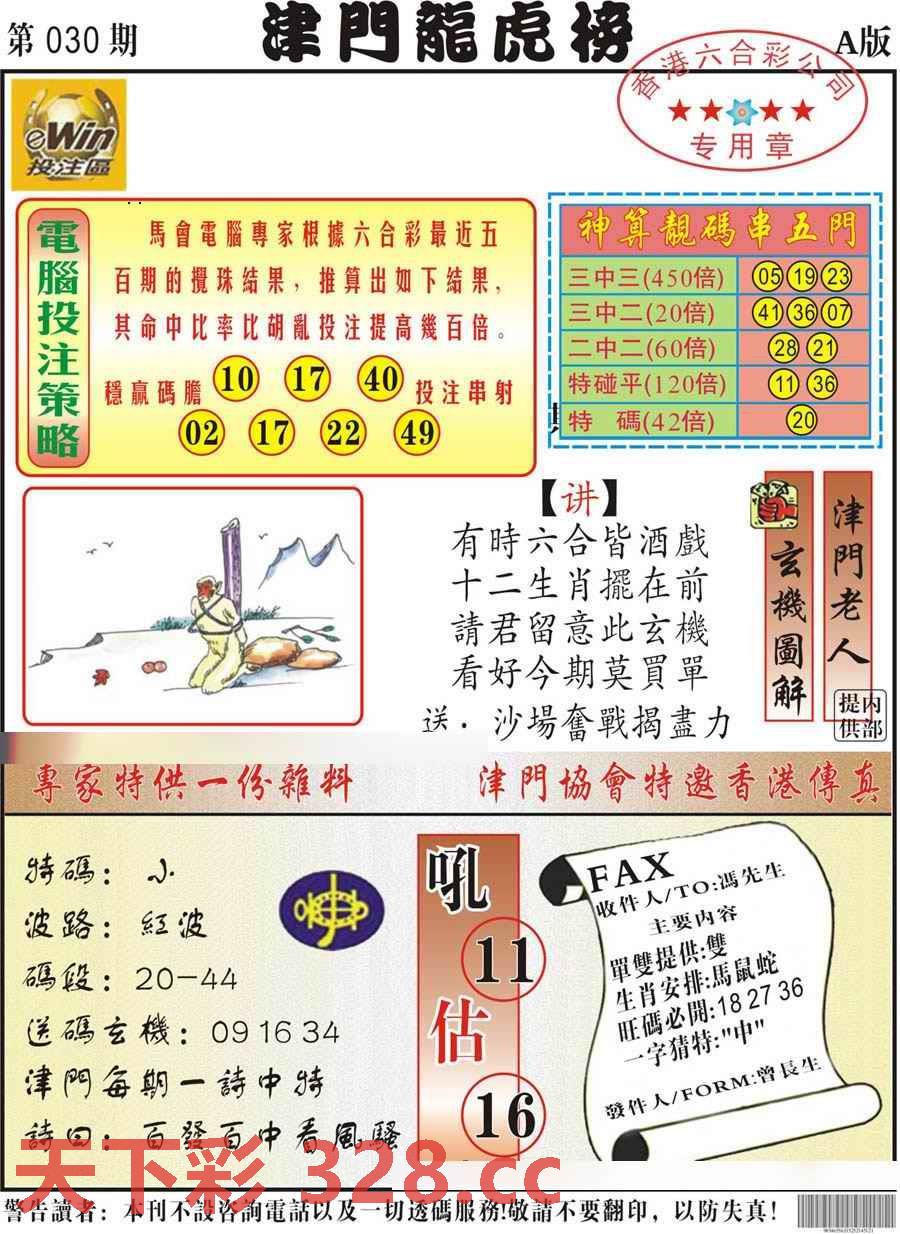 第 030 期
津門龍虎榜
A版
香港六合彩公司
专用章
eWin
投注區
電腦投注策略
馬會電腦專家根據六合彩最近五
百期的攪珠結果，推算出如下結果，
其命中比率比胡亂投注提高幾百倍。
穩贏碼膽 10 17 40 投注串射
02 17 22 49
神算靚碼串五門
三中三(450倍) 05 19 23
三中二(20倍) 41 36 07
二中二(60倍) 28 21
特碰平(120倍) 11 36
特 碼(42倍) 20
【讲】
有時六合皆酒戲
十二生肖擺在前
請君留意此玄機
看好今期莫買單
送．沙場奮戰揭盡力
玄機圖解
津門老人
内部提供
專家特供一份雜料
津門協會特邀香港傳真
特碼：小
波路：紅波
碼段：20-44
送碼玄機：09 16 34
津門每期一詩中特
詩曰：百發百中看風騷
吼
11
估
16
FAX
收件人/TO:馮先生
主要内容
單雙提供:雙
生肖安排:馬鼠蛇
旺碼必開:18 27 36
一字猜特:"中"
發件人/FORM:曾長生
天下彩 328.cc
警告讀者：本刊不設咨詢電話以及一切透碼服務!敬請不要翻印，以防失真！